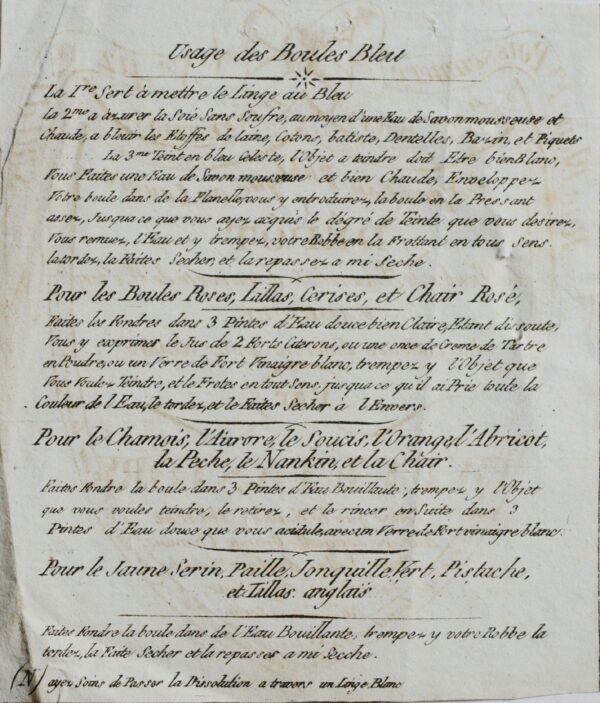 Usage des Boules Bleu
La 1re Sert à mettre le Linge au Bleu
La 2me a azurer la Soie Sans Soufre, au moyen d'une Eau de Savon mousseuse et
Chaude, a bleuir les Etoffes de laine, Cotons, batiste, Dentelles, Bazin, et Piquets
La 3me Teint en bleu Celeste, l'Objet a teindre doit Etre bien Blanc,
Vous Faites une Eau de Savon mousseuse et bien Chaude, Enveloppez
Votre boule dans de la Flanelle, vous y entroduirez, la boule en la Pressant
assez, Jusqua ce que vous ayez acquis le dégré de Teinte que vous desirez,
Vous remuez, l'Eau et y trempez, votre Robbe en la Frottant en tous Sens
la tordez, la Faites Secher, et la repassez a mi Seche.
Pour les Boules Roses, Lillas, Cerises, et Chair Rosé,
Faites les Fondres dans 3 Pintes d'Eau douce bien Claire, Etant dissoute,
Vous y exprimez le Jus de 2 Forts Citerons, ou une once de Crême de Tartre
en Poudre, ou un Verre de Fort Vinaigre blanc, trempez y l'Objet que
Vous Voulez Teindre, et le Frotes en tout Sens jusqua ce qu'il ai Prie toute la
Couleur de l'Eau, le tordez, et le Faites Secher à l'Envers.
Pour le Chamois, l'Aurore, le Soucis, l'Orange, l'Abricot,
la Peche, le Nankin, et la Chair.
Faites Fondre la boule dans 3 Pintes d'Eau Bouillante, trempez y l'Objet
que vous voules teindre, le retirez, et le rincer en Suite dans 3
Pintes d'Eau douce que vous acidule, avec un Verre de Fort vinaigre blanc.
Pour le Jaune Serin, Paille, Jonquille, Vert, Pistache,
et Lillas anglais
Faites Fondre la boule dans de l'Eau Bouillante, trempez y votre Robbe la
tordez, la Faite Secher et la repasses a mi Secche.
(N) ayez Soins de Passer la Dissolution a travers un Linge Blanc